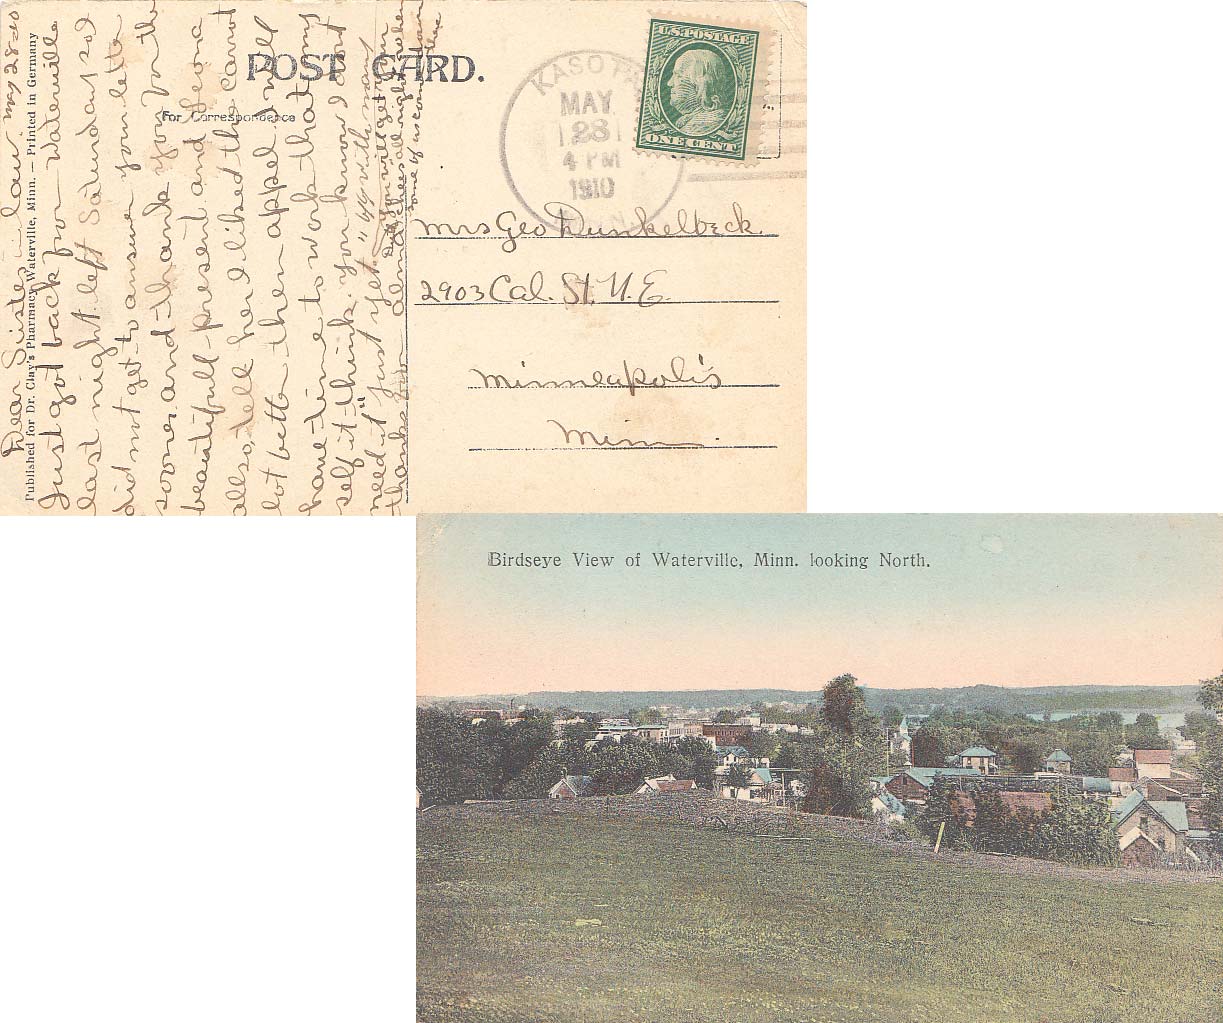 POST CARD.
For Correspondence
Published for Dr. Clay's Pharmacy Waterville, Minn. — Printed in Germany
Dear Sister in law May 28-10
Just got back from Waterville
last night left Saturday so I
did not get to answer your letter
sooner and thank you for the
beautifull present and Leona
allso, tell her I liked the carrot
lot better then appel I will
have time to work that my
self it think. you know I dont
need it "just yet." "Ha"
thanks
KASOTA
MAY
28
4 PM
1910
MINN.
U.S. POSTAGE
ONE CENT
Mrs Geo Dunkelbeck
2903 Cal. St. N.E.
Minneapolis
Minn.
Birdseye View of Waterville, Minn. looking North.